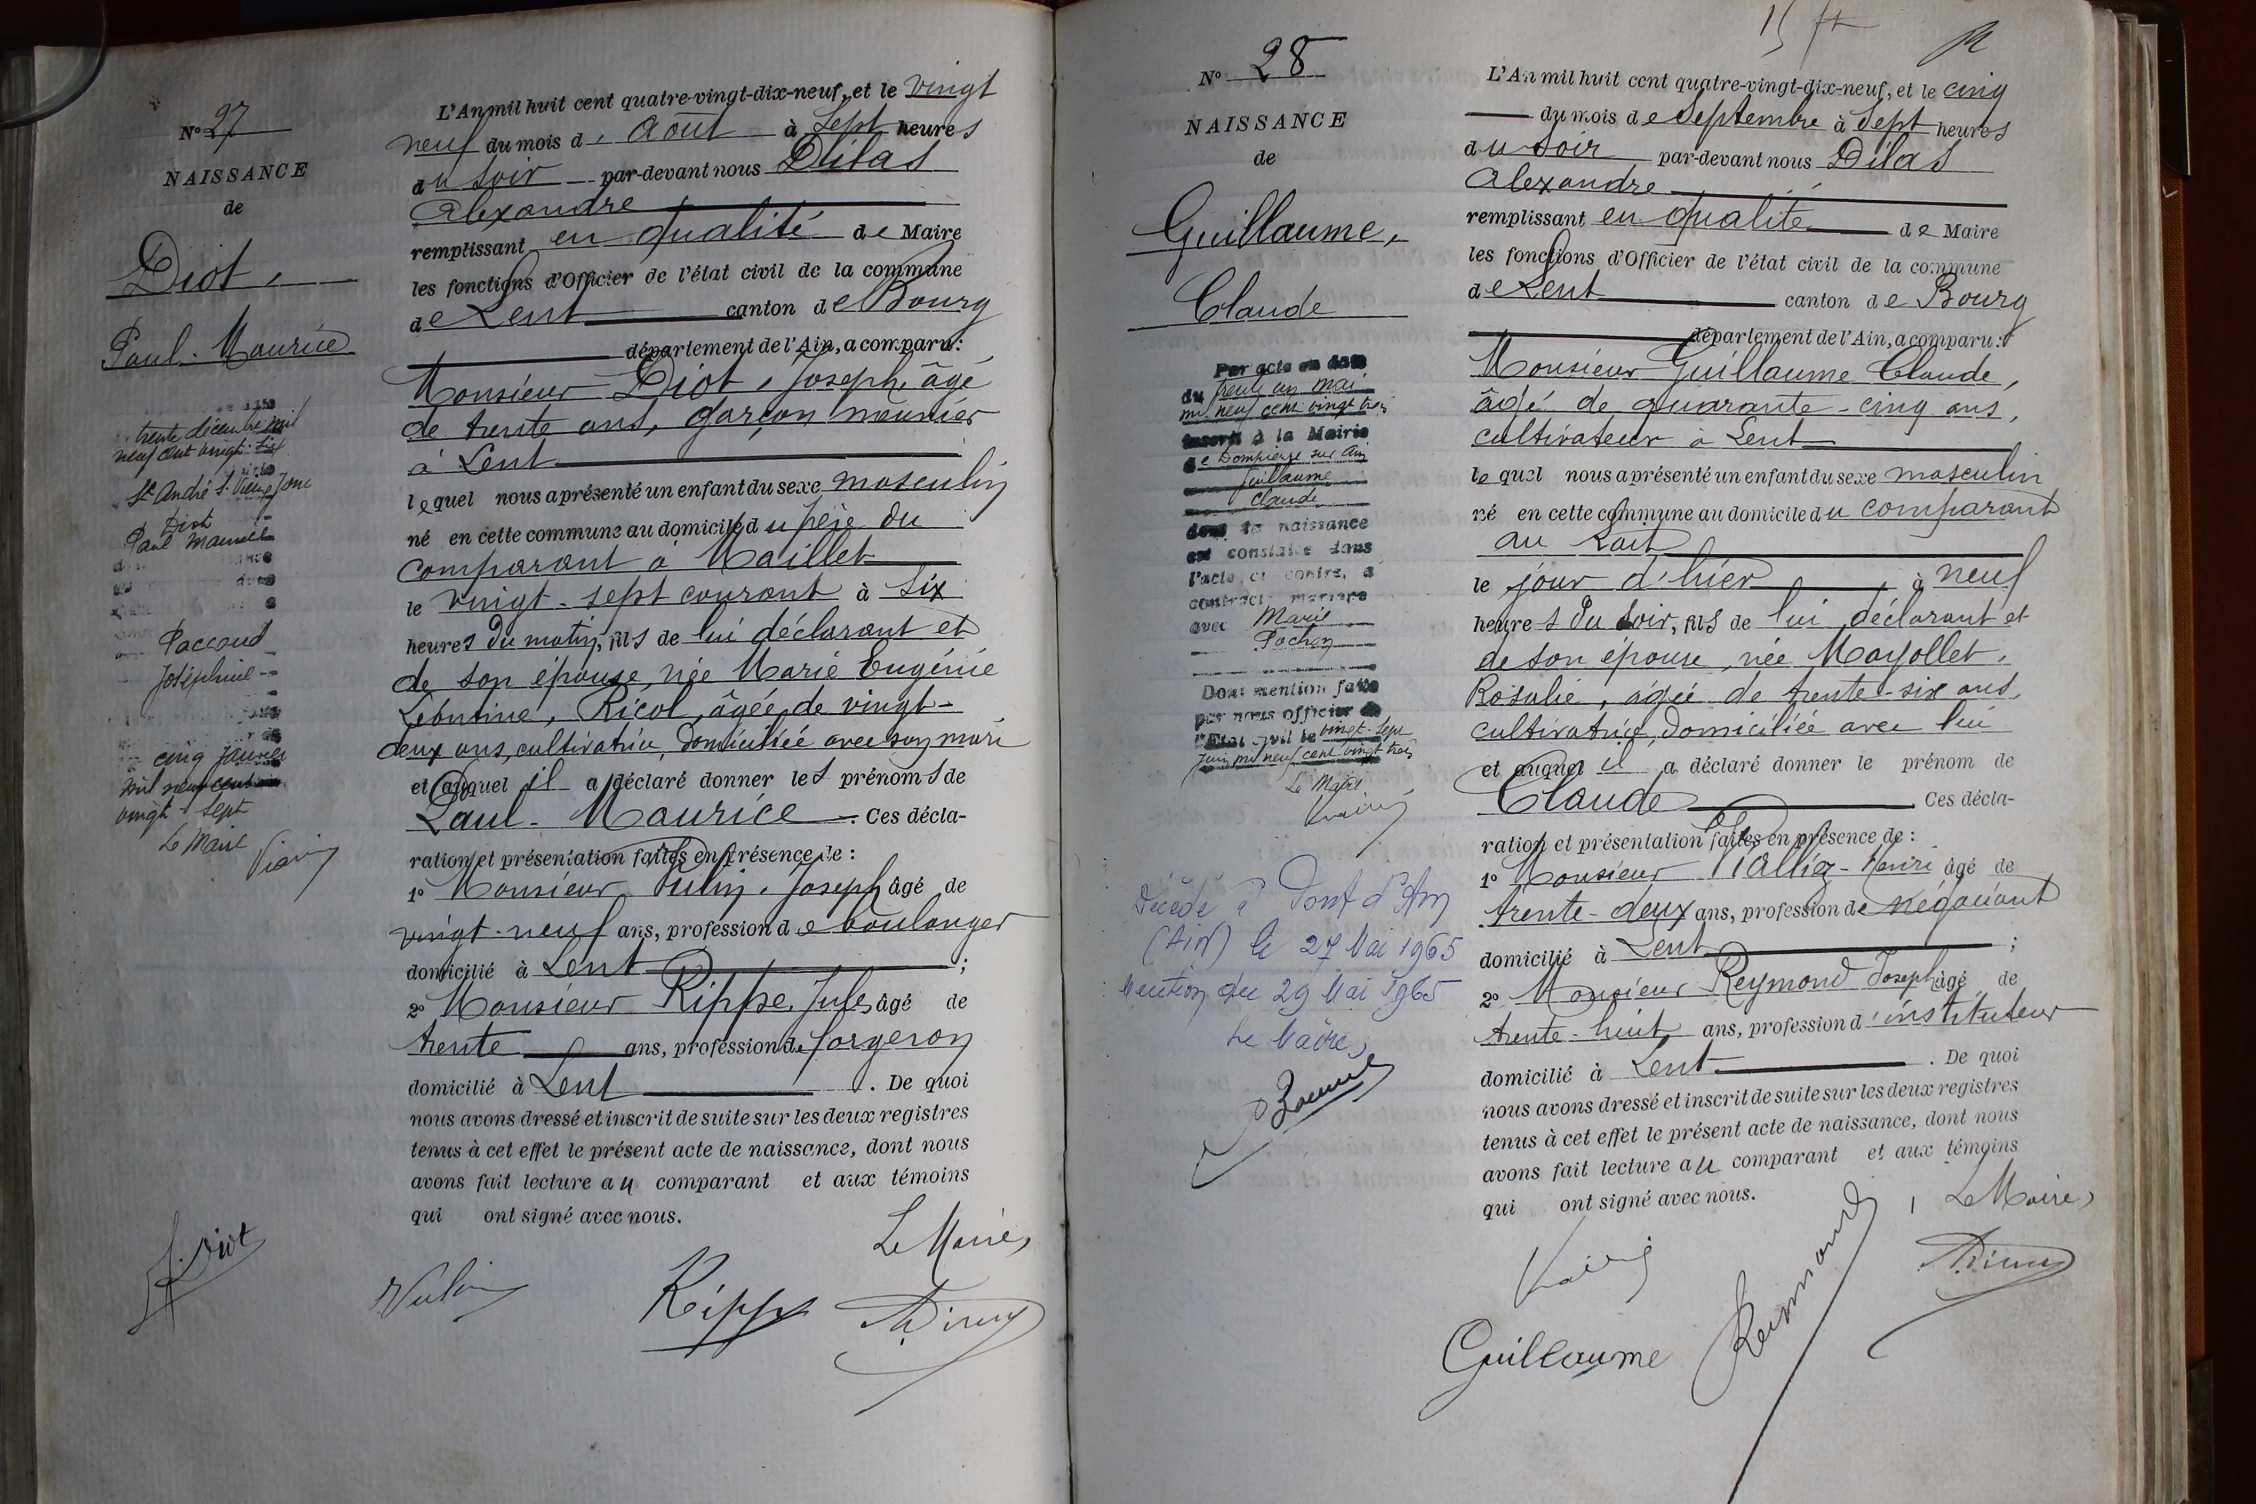 N° 27
NAISSANCE
de
Diot,
Paul-Maurice
trente décembre mil
neuf cent vingt-six
St André s. Vieux Jonc
Diot
Paul Maurice
Paccoud
Joséphine
cinq janvier
mil neuf cent
vingt sept
Le Maire
J. Diot
L'An mil huit cent quatre-vingt-dix-neuf, et le vingt
neuf du mois d'Août à Sept heures
du soir par-devant nous Dilas
Alexandre
remplissant en qualité de Maire
les fonctions d'Officier de l'état civil de la commune
de Lent canton de Bourg
département de l'Ain, a comparu:
Monsieur Diot, Joseph, âgé
de trente ans, garçon meunier
à Lent
lequel nous a présenté un enfant du sexe masculin
né en cette commune au domicile du père du
comparant à Maillet
le vingt-sept courant à six
heures du matin, fils de lui déclarant et
de son épouse, née Marie Eugénie
Ricol, âgée de vingt-
deux ans, cultivatrice, domiciliée avec son mari
et auquel il a déclaré donner les prénoms de
Paul-Maurice. Ces décla-
ration et présentation faites en présence de:
1° Monsieur Vulin, Joseph âgé de
vingt-neuf ans, profession de boulanger
domicilié à Lent;
2° Monsieur Rippe, Jules, âgé de
trente ans, profession de forgeron
domicilié à Lent. De quoi
nous avons dressé et inscrit de suite sur les deux registres
tenus à cet effet le présent acte de naissance, dont nous
avons fait lecture au comparant et aux témoins
qui ont signé avec nous.
Le Maire,
Vulin Rippe
N° 28
NAISSANCE
de
Guillaume,
Claude
Par acte en date
du trente un mai
mil neuf cent vingt trois
inscrit à la Mairie
de Dompierre sur Ain
Guillaume
Claude
dont la naissance
est constatée dans
l'acte ci contre, a
contracté mariage
avec Marie
Pochon
Dont mention faite
par nous officier de
l'Etat civil le vingt-sept
Juin mil neuf cent vingt trois
Le Maire
Décédé à Pont d'Ain
(Ain) le 27 Mai 1965
Mention du 29 Mai 1965
Le Maire,
L'An mil huit cent quatre-vingt-dix-neuf, et le cinq
du mois de Septembre à Sept heures
du soir par-devant nous Dilas
Alexandre
remplissant en qualité de Maire
les fonctions d'Officier de l'état civil de la commune
de Lent canton de Bourg
département de l'Ain, a comparu:
Monsieur Guillaume Claude,
âgé de quarante-cinq ans,
cultivateur à Lent
lequel nous a présenté un enfant du sexe masculin
né en cette commune au domicile du comparant
au
le jour d'hier, à neuf
heures du soir, fils de lui déclarant et
de son épouse, née Mayollet,
Rosalie, âgée de trente-six ans,
cultivatrice, domiciliée avec lui
et auquel il a déclaré donner le prénom de
Claude Ces décla-
ration et présentation faites en présence de:
1° Monsieur Henri âgé de
trente-deux ans, profession de négociant
domicilié à Lent;
2° Monsieur Reymond Joseph âgé de
trente-huit ans, profession d'instituteur
domicilié à Lent. De quoi
nous avons dressé et inscrit de suite sur les deux registres
tenus à cet effet le présent acte de naissance, dont nous
avons fait lecture au comparant et aux témoins
qui ont signé avec nous.
Le Maire,
Guillaume Reymond